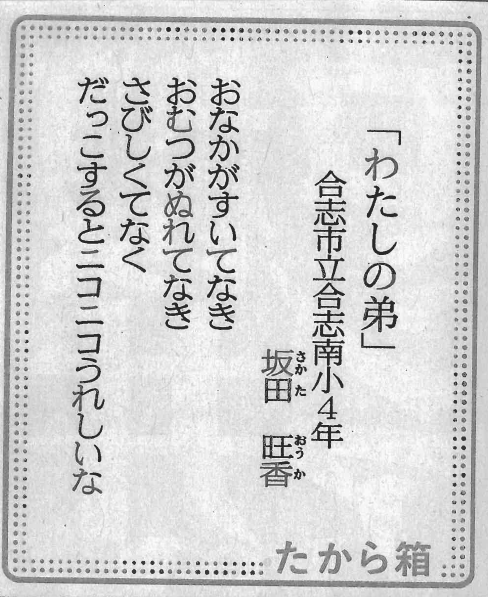 「わたしの弟」
合志市立合志南小４年
坂田　旺香
さかた　おうか
おなかがすいてなき
おむつがぬれてなき
さびしくてなく
だっこするとニコニコうれしいな
たから箱